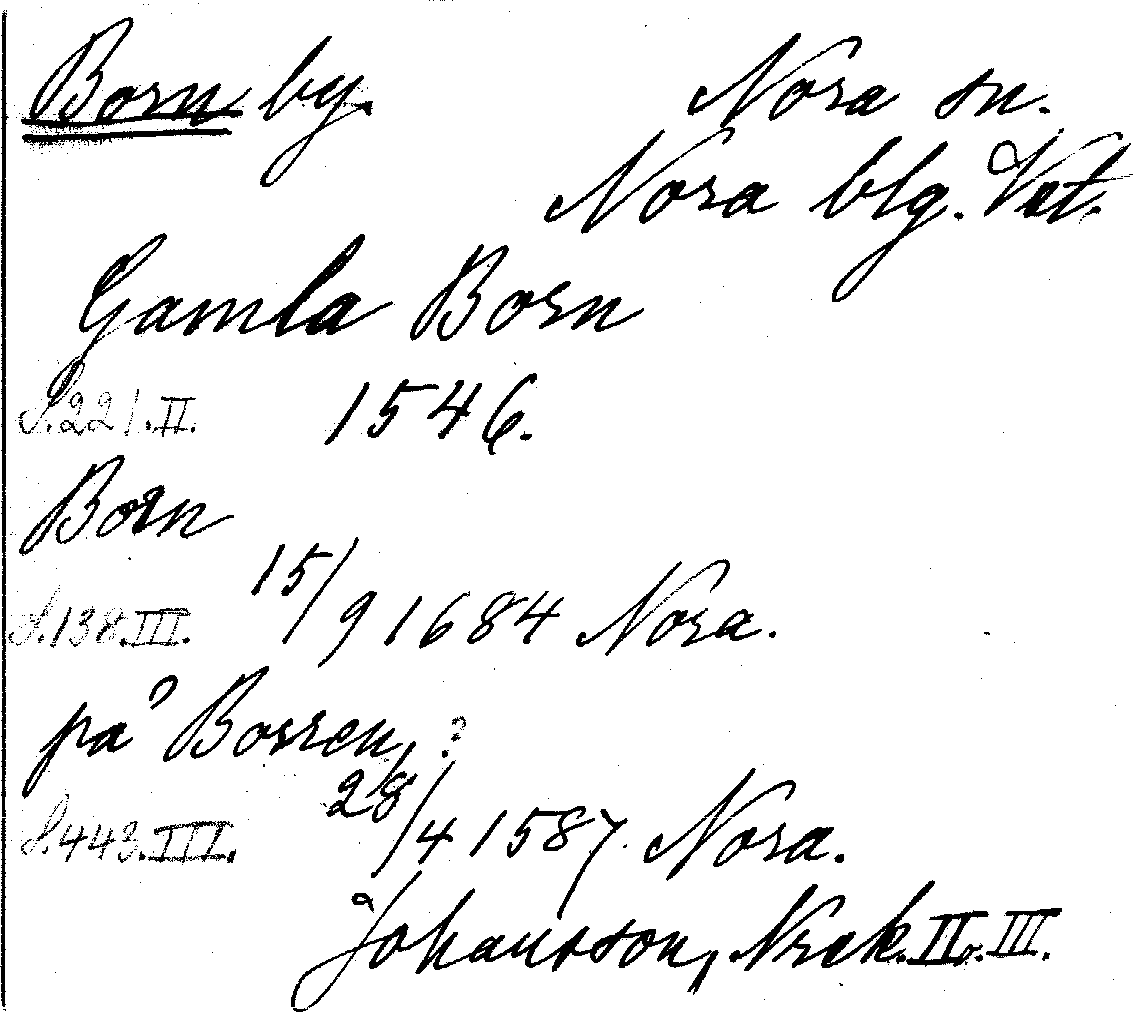 Born by. Nora sn.
Nora blg. Vät.
Gamla Born
S. 221. II. 1546.
Born
S. 138. III. 15/9 1684 Nora.
på Borren, ?
S. 443. III. 28/4 1587 Nora.
Johansson, Nrek. II. III.